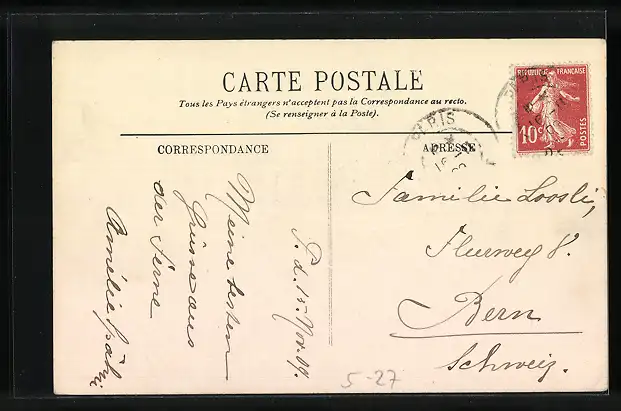 CARTE POSTALE
Tous les Pays étrangers n'acceptent pas la Correspondance au recto.
(Se renseigner à la Poste).
CORRESPONDANCE
ADRESSE
REPUBLIQUE FRANÇAISE
10c
POSTES
PARIS
P. d. 15. Nov. 09.
Meine besten
Grüsse aus
der Ferne
Amélie
Familie Loosli,
Flurweg 8.
Bern
Schweiz.
5-27